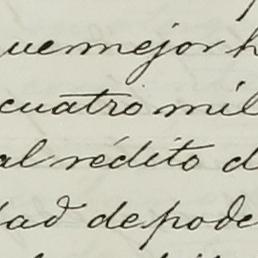 que mejor h
cuatro mil
al rédito d
dad de pode